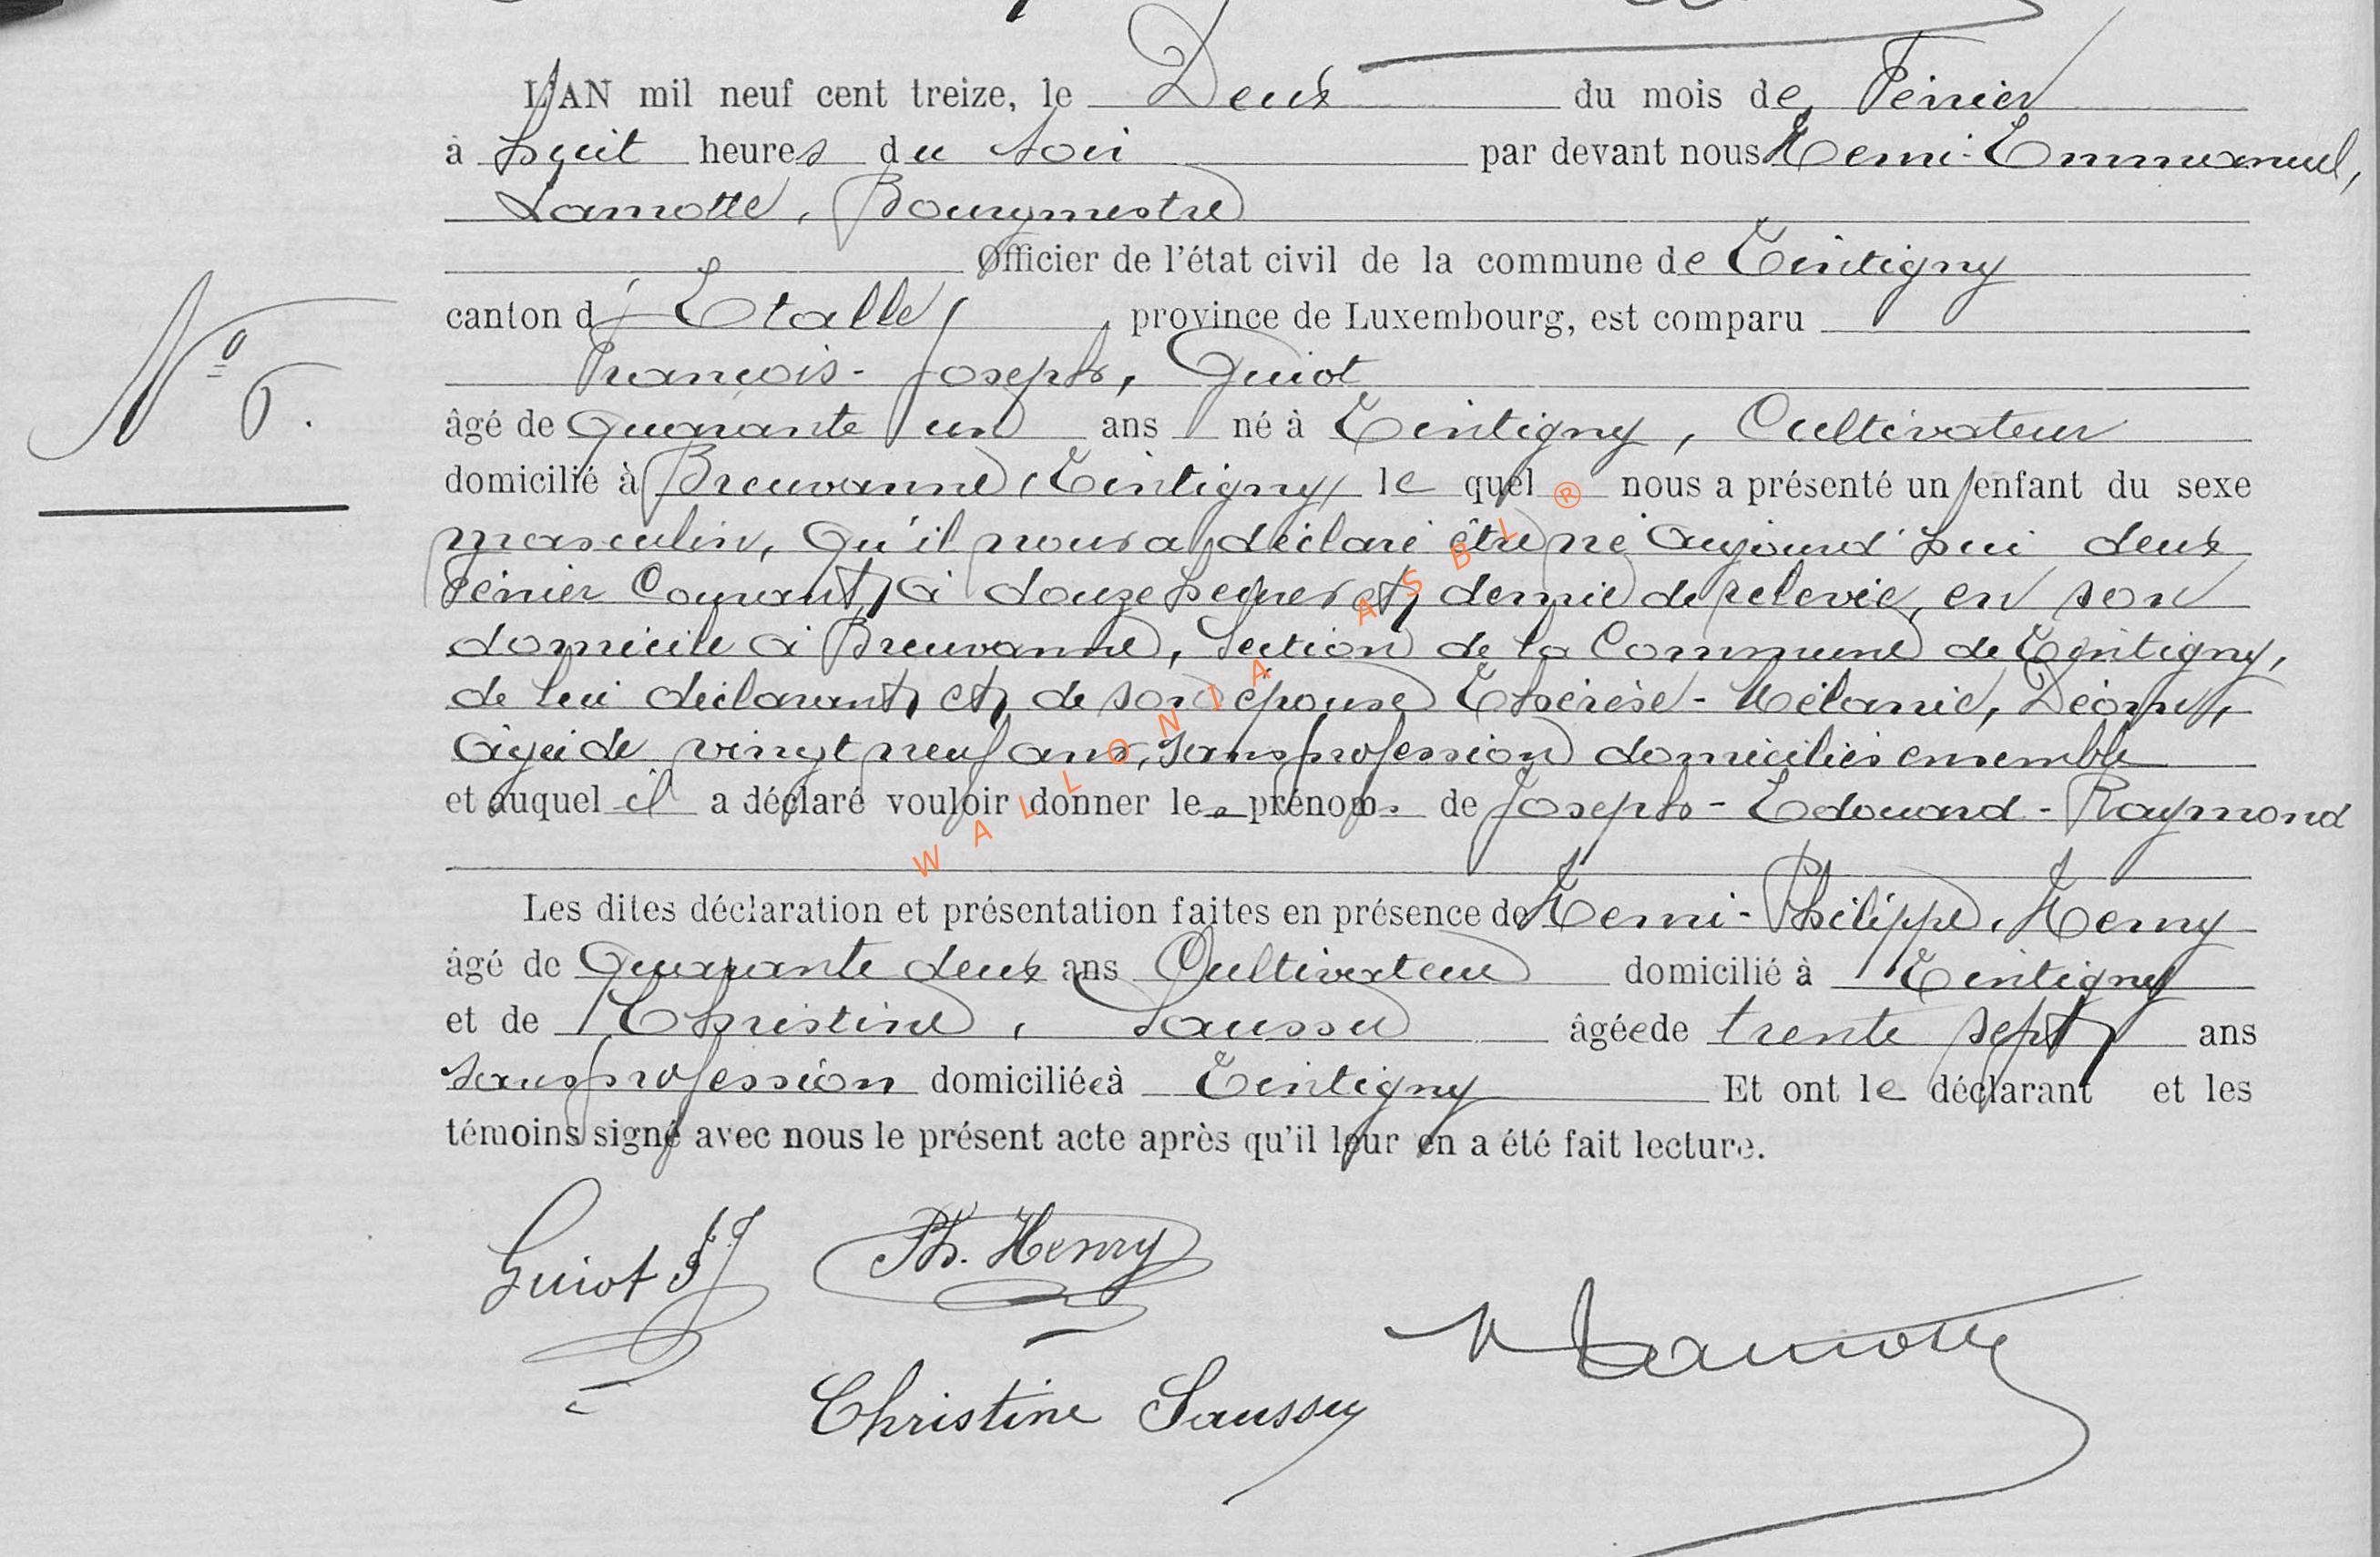 L'AN mil neuf cent treize, le Deux du mois de Février
à huit heures du soir par devant nous Henri-Emmanuel,
Lamotte, Bourgmestre
Officier de l'état civil de la commune de Tintigny
canton d'Etalle, province de Luxembourg, est comparu
François-Joseph, Guiot
N° 6.
âgé de quarante un ans né à Tintigny, Cultivateur
domicilié à Breuvanne (Tintigny) le quel nous a présenté un enfant du sexe
masculin, qu'il nous a déclaré être né aujourd'hui deux
Février courant, à douze heures et demie de relevée, en son
domicile à Breuvanne, section de la Commune de Tintigny,
de lui déclarant et de son épouse Thérèse-Mélanie,
âgée de vingt neuf ans, sans profession domiciliés ensemble
et auquel il a déclaré vouloir donner les prénoms de Joseph-Edouard-Raymond
Les dites déclaration et présentation faites en présence de Henri-Philippe, Henry
âgé de quarante deux ans Cultivateur domicilié à Tintigny
et de Christine, Saussu âgée de trente sept ans
sans profession domiciliée à Tintigny Et ont le déclarant et les
témoins signé avec nous le présent acte après qu'il leur en a été fait lecture.
Guiot FJ Ph. Henry
H Lamotte
Christine Saussu
WALLONIA ASBL ®